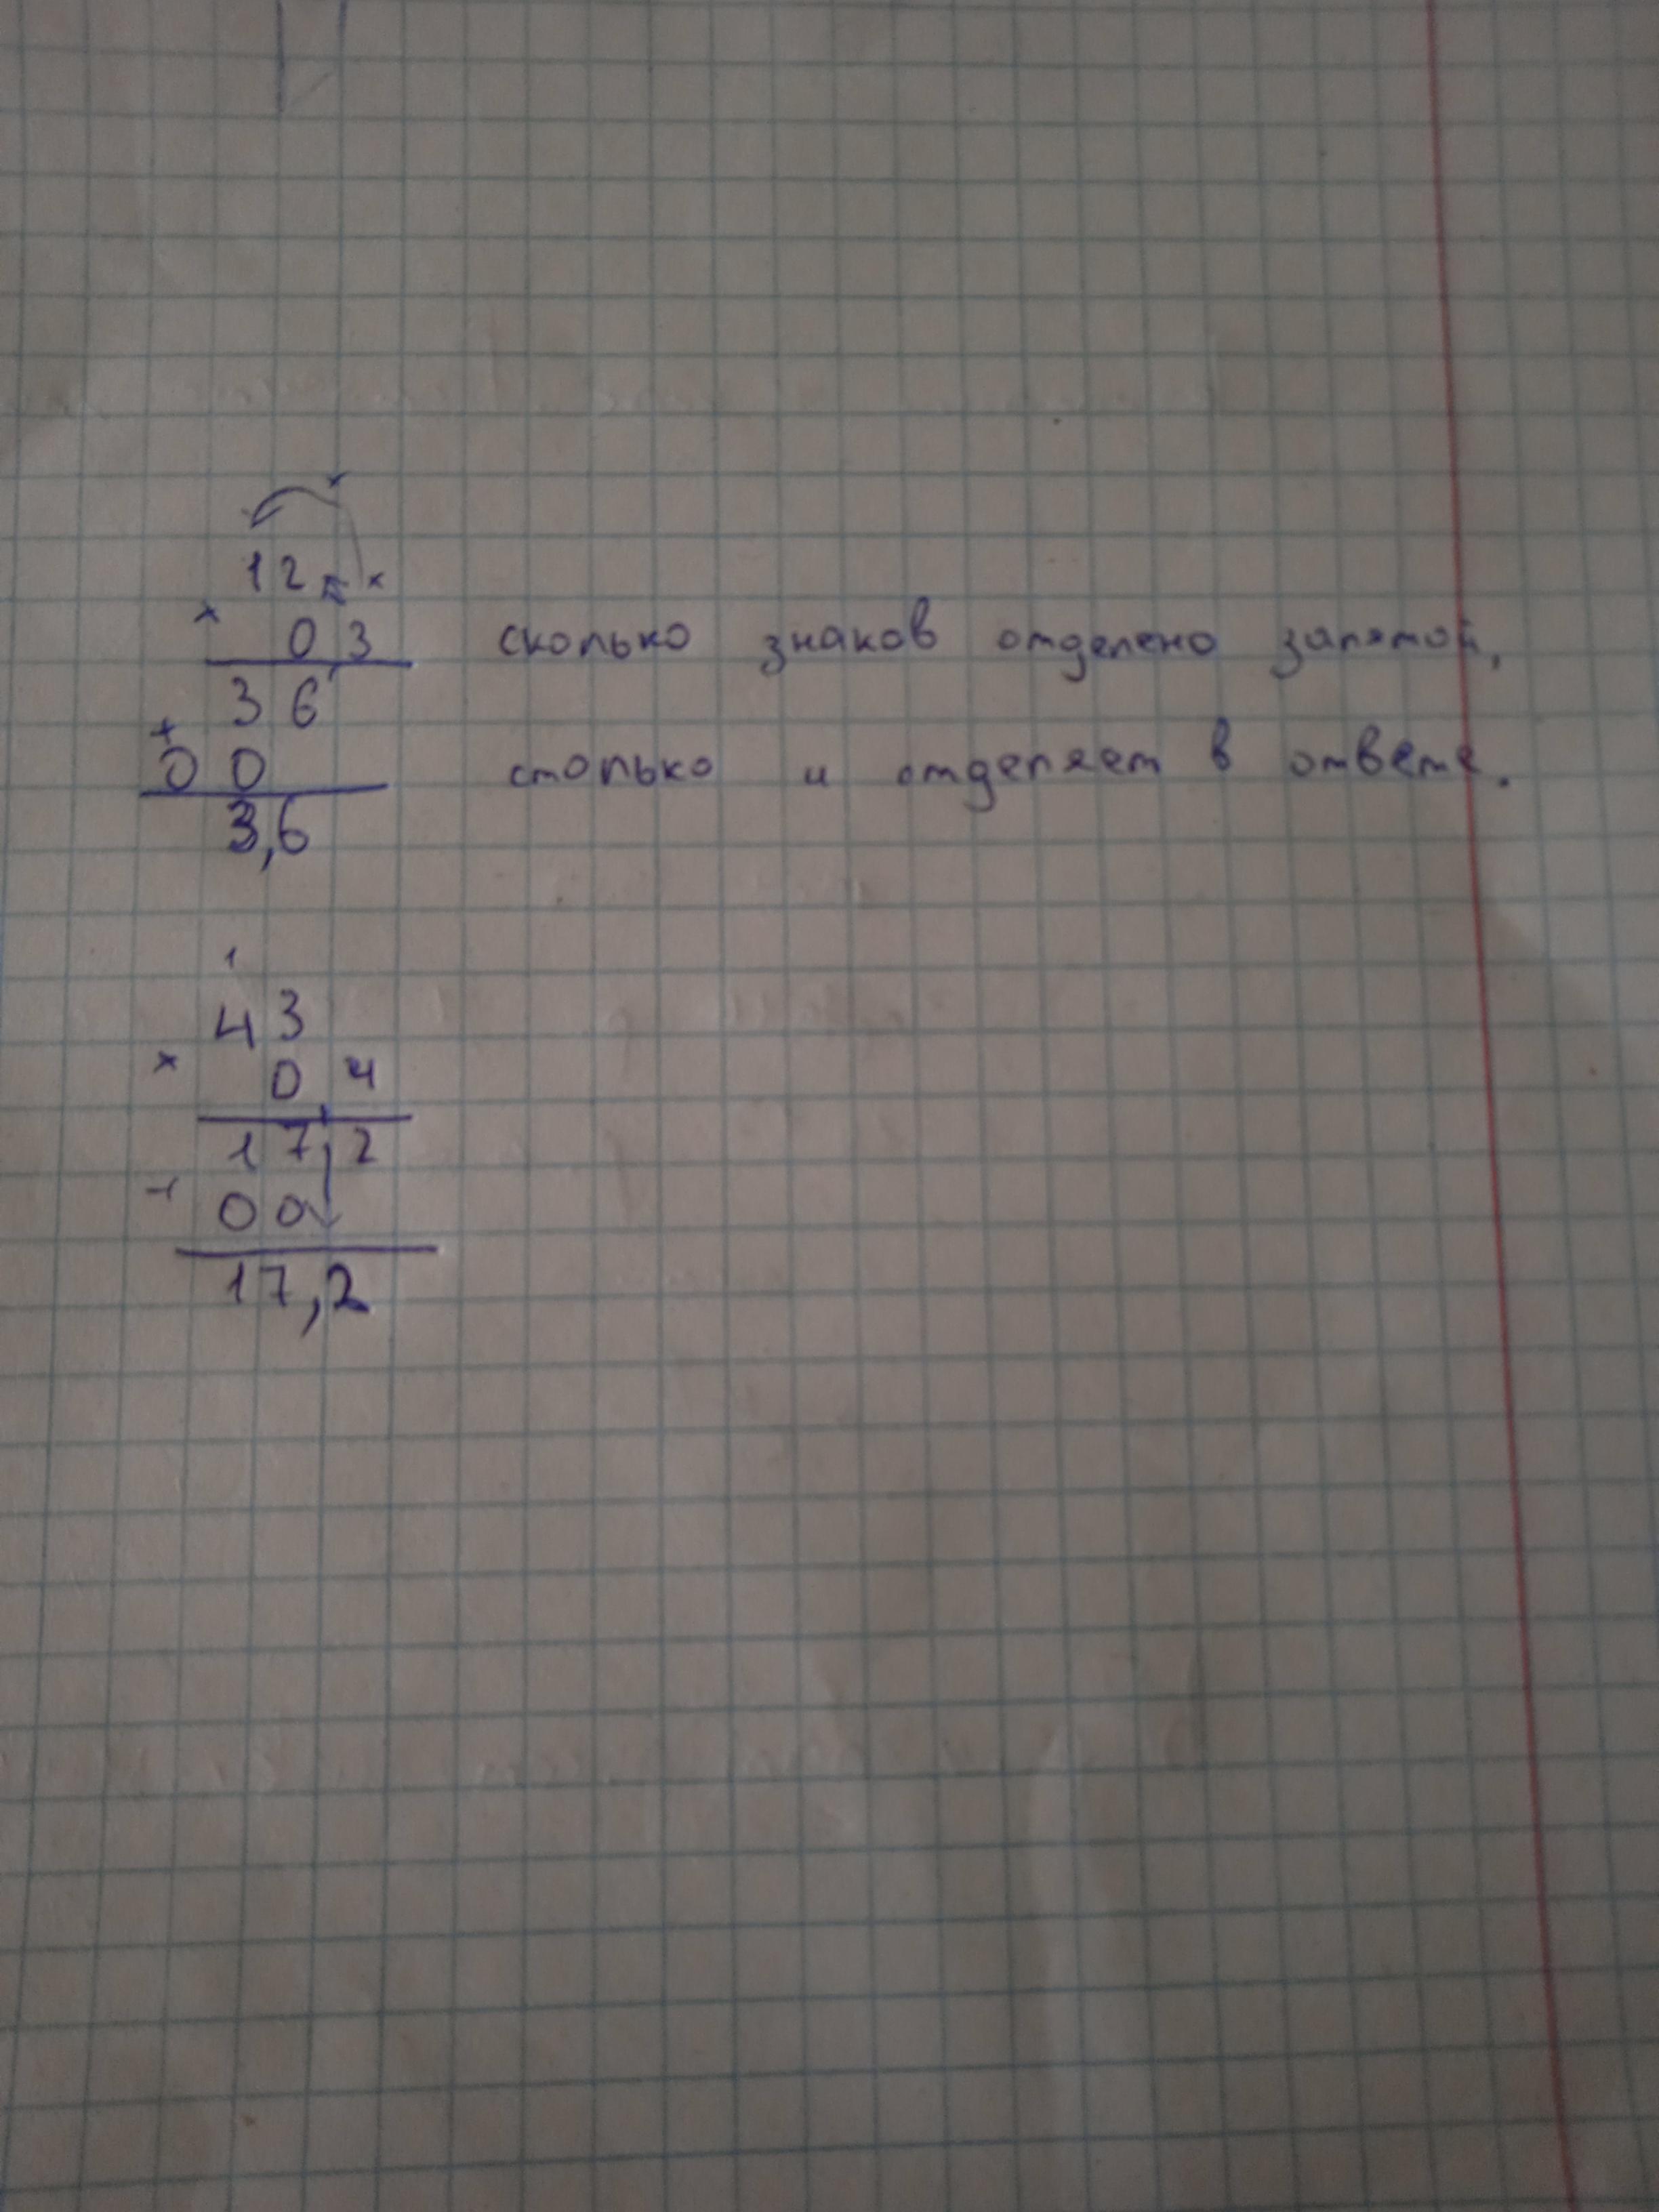 12
×
0,3 сколько знаков отделено запятой,
36
+
00 столько и отделяет в ответе.
3,6
1
43
×
0,4
17,2
+
00
17,2